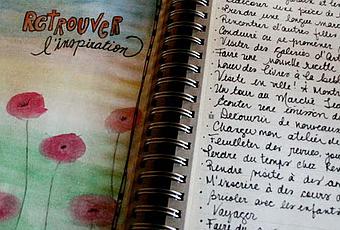 RETROUVER
l'inspiration
pièce de
Prendre une longue marche
Rencontrer d'autres filles
Conduire ou se promener
Visiter des galeries d'Art
Faire une nouvelle recette
Louer des livres à la
Visite en ville! à Montré
Un tour au Marché
Écouter une émission de
Découvrir de nouveaux
Changer mon atelier de
Feuilleter des revues,
Perdre du temps chez
Prendre poste à des
M'inscrire à des cours
Bricoler avec les enfants
Voyager
Faire du